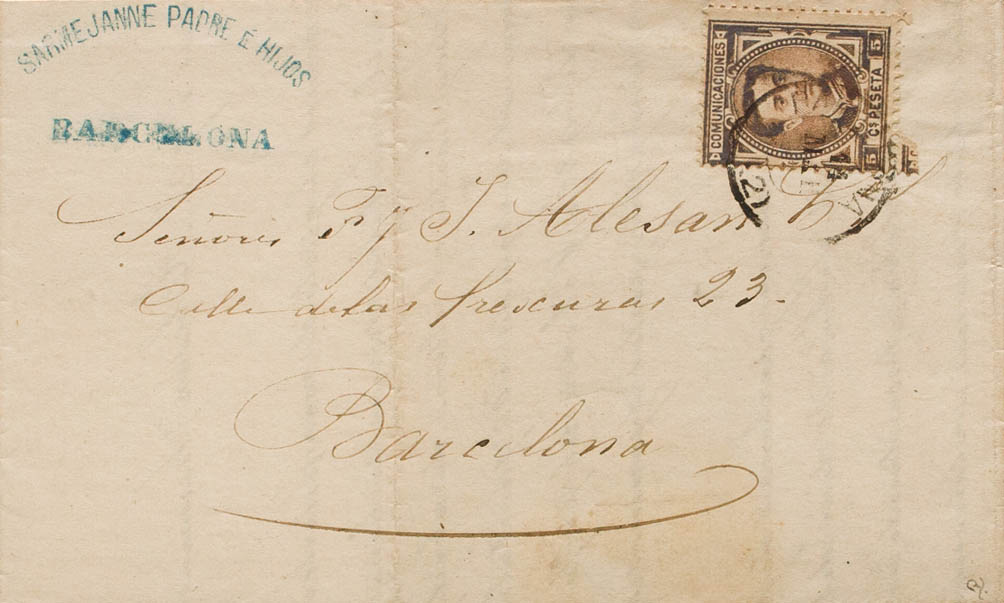 SARMEJANNE PADRE É HIJOS
BARCELONA
COMUNICACIONES
5 Cs PESETA 5
Señores F y J. Alesan
Calle de las frescuras 23.
Barcelona